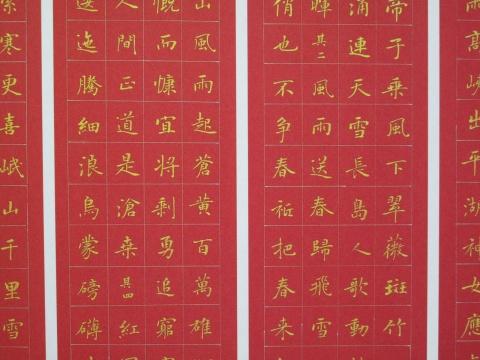 峽出平湖神女應
帝子乘風下翠薇斑竹
涌連天雪長島人歌動
暉其二風雨送春歸飛雪
俏也不争春祗把春來
山風雨起蒼黃百萬雄
慨而慷宜將剩勇追窮
人間正道是滄桒其四紅
逶迤騰細浪烏蒙磅礴
寒更喜岷山千里雪